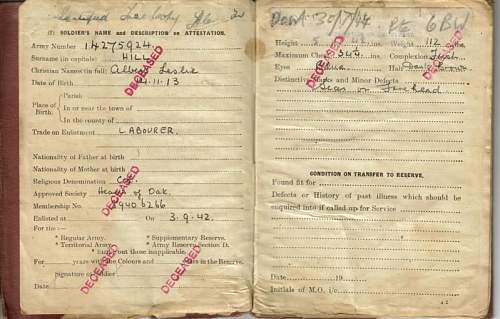 (I) SOLDIER'S NAME and DESCRIPTION on ATTESTATION.
Army Number 14275924
Surname (in capitals) HILL
Christian Names (in full) Albert Leslie
Date of Birth 11.13
Place of Birth.
Parish
In or near the town of
In the county of
Trade on Enlistment LABOURER.
Nationality of Father at birth
Nationality of Mother at birth
Religious Denomination
Approved Society Hearts of Oak.
Membership No.
Enlisted at On 3.9.42.
For the :—
* Regular Army. * Supplementary Reserve.
* Territorial Army. * Army Reserve Section D.
* Strike out those inapplicable.
For years with the Colours and years in the Reserve.
Signature of Soldier
Date
DECEASED
DECEASED
DECEASED
DECEASED
DECEASED
6BW
Height ft. ins. Weight 112 lbs.
Maximum Chest ins. Complexion Fresh
Eyes Hair Dark Brown
Distinctive Marks and Minor Defects
Scar on Forehead
CONDITION ON TRANSFER TO RESERVE.
Found fit for
Defects or History of past illness which should be
enquired into if called up for Service
Date 19
Initials of M.O. i/c
DECEASED
DECEASED